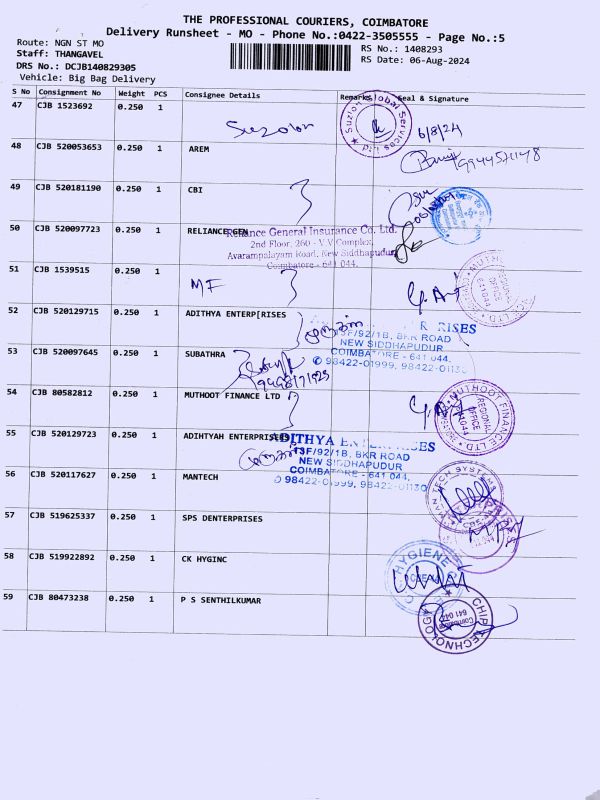 THE PROFESSIONAL COURIERS, COIMBATORE
Delivery Runsheet - MO - Phone No.:0422-3505555 - Page No.:5
Route: NGN ST MO
RS No.: 1408293
Staff: THANGAVEL
RS Date: 06-Aug-2024
DRS No.: DCJB140829305
Vehicle: Big Bag Delivery
S No Consignment No Weight PCS Consignee Details Remarks Seal & Signature
47 CJB 1523692 0.250 1
Suzlon
Suzlon Global Services Ltd
6/8/24
48 CJB 520053653 0.250 1 AREM
49 CJB 520181190 0.250 1 CBI
50 CJB 520097723 0.250 1 RELIANCE GEN
Reliance General Insurance Co. Ltd.
2nd Floor, 260 - V V Complex,
Avarampalayam Road, New Siddhapudur,
Coimbatore - 641 044.
51 CJB 1539515 0.250 1
MF
52 CJB 520129715 0.250 1 ADITHYA ENTERP[RISES
R RISES
13F/92/1B, BKR ROAD
NEW SIDDHAPUDUR
COIMBATORE - 641 044.
✆ 98422-01999, 98422-01130
53 CJB 520097645 0.250 1 SUBATHRA
54 CJB 80582812 0.250 1 MUTHOOT FINANCE LTD
MUTHOOT FINANCE LTD
REGIONAL OFFICE
641044
55 CJB 520129723 0.250 1 ADIHTYAH ENTERPRISES
ADITHYA ENTERPRISES
13F/92/1B, BKR ROAD
NEW SIDDHAPUDUR
COIMBATORE - 641 044.
✆ 98422-01999, 98422-01130
56 CJB 520117627 0.250 1 MANTECH
TECH SYSTEMS
57 CJB 519625337 0.250 1 SPS DENTERPRISES
58 CJB 519922892 0.250 1 CK HYGINC
HYGIENE
59 CJB 80473238 0.250 1 P S SENTHILKUMAR
CHIP TECHNOLOGY
Coimbatore
641 044